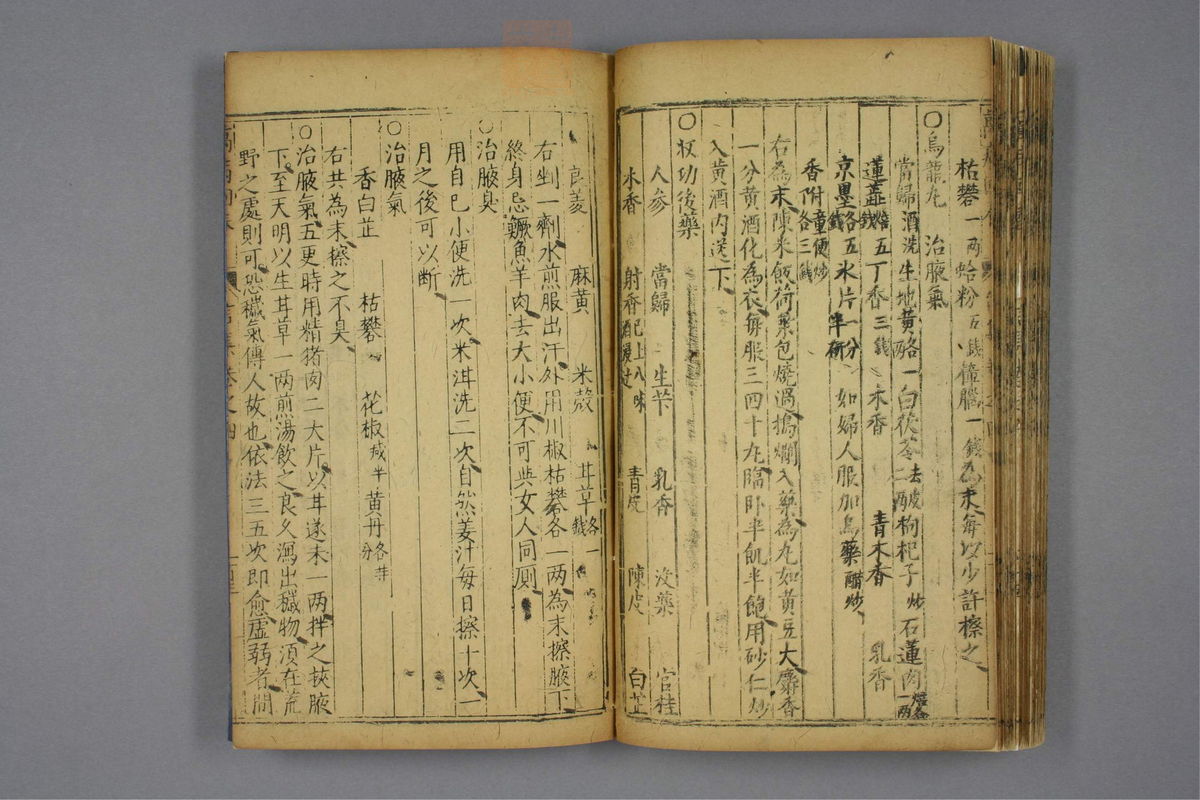 枯礬一兩 蛤粉五錢 樟腦一錢 為末每以少許擦之
○烏龍丸 治腋氣
當歸酒洗 生地黃各一兩 白茯苓去皮二兩 枸杞子炒 石蓮肉焙各一兩
蓮蕋焙五錢 丁香三錢 木香 青木香 乳香
京墨各五錢 氷片一分半 如婦人服加烏藥醋炒 香附童便炒各三錢
右為末陳米飯荷葉包燒過搗爛入藥為丸如黃豆大麝香
一分黃酒化為衣每服三四十丸臨卧半飢半飽用砂仁炒
入黃酒內送下
○杖功後藥
人參 當歸 生芐 乳香 沒藥 官桂
木香 射香 已上八味 青皮 陳皮 白芷
良姜 麻黃 米殼 甘草各一錢
右剉一劑水煎服出汗外用川椒枯礬各一兩為末擦腋下
終身忌鱖魚羊肉去大小便不可與女人同厠
○治腋臭
用自己小便洗一次米泔洗二次自然姜汁每日擦十次一
月之後可以斷
○治腋氣
香白芷 枯礬 花椒 黃丹
右共為末擦之不臭
○治腋氣五更時用精猪肉二大片以甘遂末一兩拌之挾腋
下至天明以生甘草一兩煎湯飲之良久瀉出穢物須在荒
野之處則可恐穢氣傳人故也依法三五次即愈虛弱者間